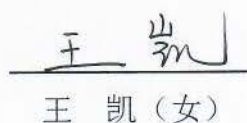 王凯
王 凯（女）